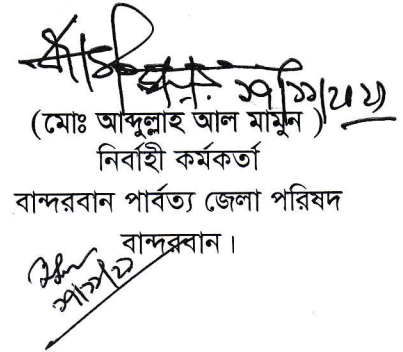 (মোঃ আব্দুল্লাহ আল মামুন )
নির্বাহী কর্মকর্তা
বান্দরবান পার্বত্য জেলা পরিষদ
বান্দরবান।